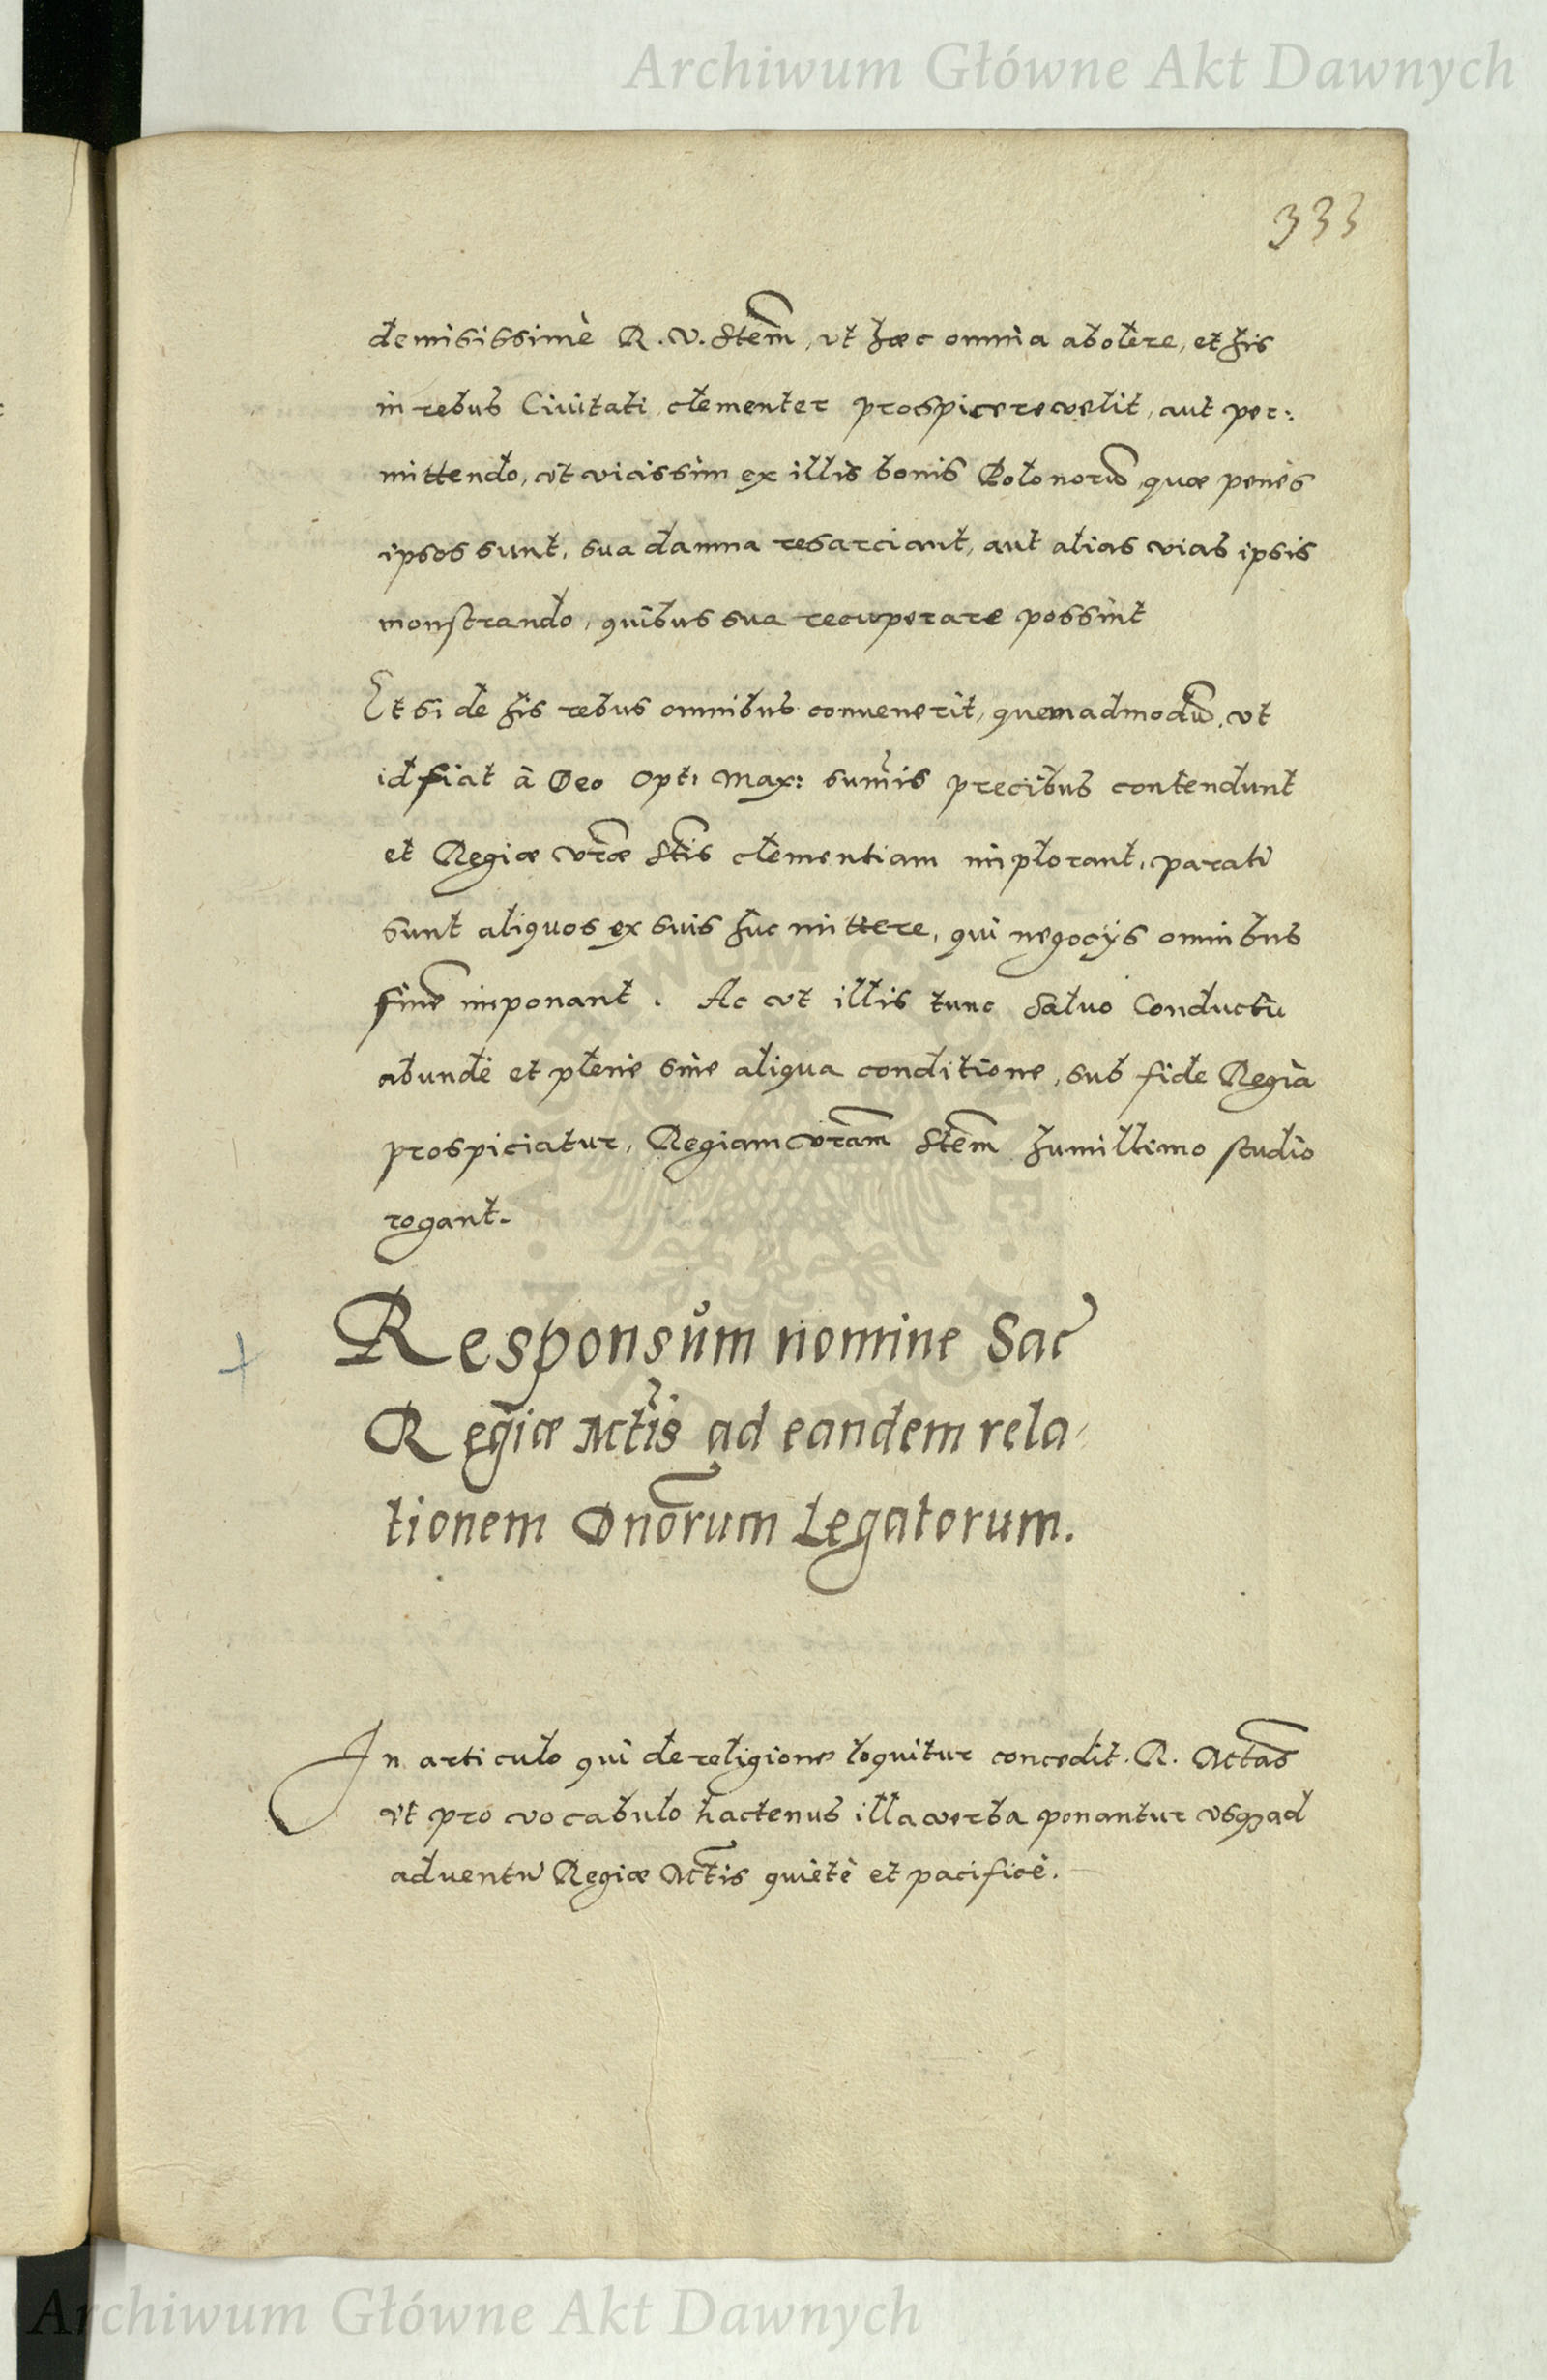 Archiwum Główne Akt Dawnych
333
demisissimè R. V. Stem̄, ut hæc omnia abolere, et his
in rebus Civitati clementer prospicere velit, aut per:
mittendo, ut vicissim ex illis bonis Polonorū, quæ penes
ipsos sunt, sua damna resarciant, aut alias vias ipsis
monstrando, quibus sua recuperare possint
Et si de his rebus omnibus convenerit, quemadmodū, ut
id fiat à Deo Opt: Max: sum̄is precibus contendunt
et Regiæ vrae Stis clementiam implorant, parati
sunt aliquos ex suis huc mittere, qui negocijs omnibus
finē imponant. Ac ut illis tunc Salvo Conductu
abundè et plenè sine aliqua conditione, sub fide Regia
prospiciatur, Regiam vram Stem humillimo studio
rogant.
Responsum nomine Sac
Regiæ Mtis ad eandem rela
tionem Dnorum Legatorum.
In articulo qui de religione loquitur concedit. R. Mtas
ut pro vocabulo hactenus illa verba ponantur usq3 ad
adventū Regiæ Mtis quietè et pacificè.
Archiwum Główne Akt Dawnych